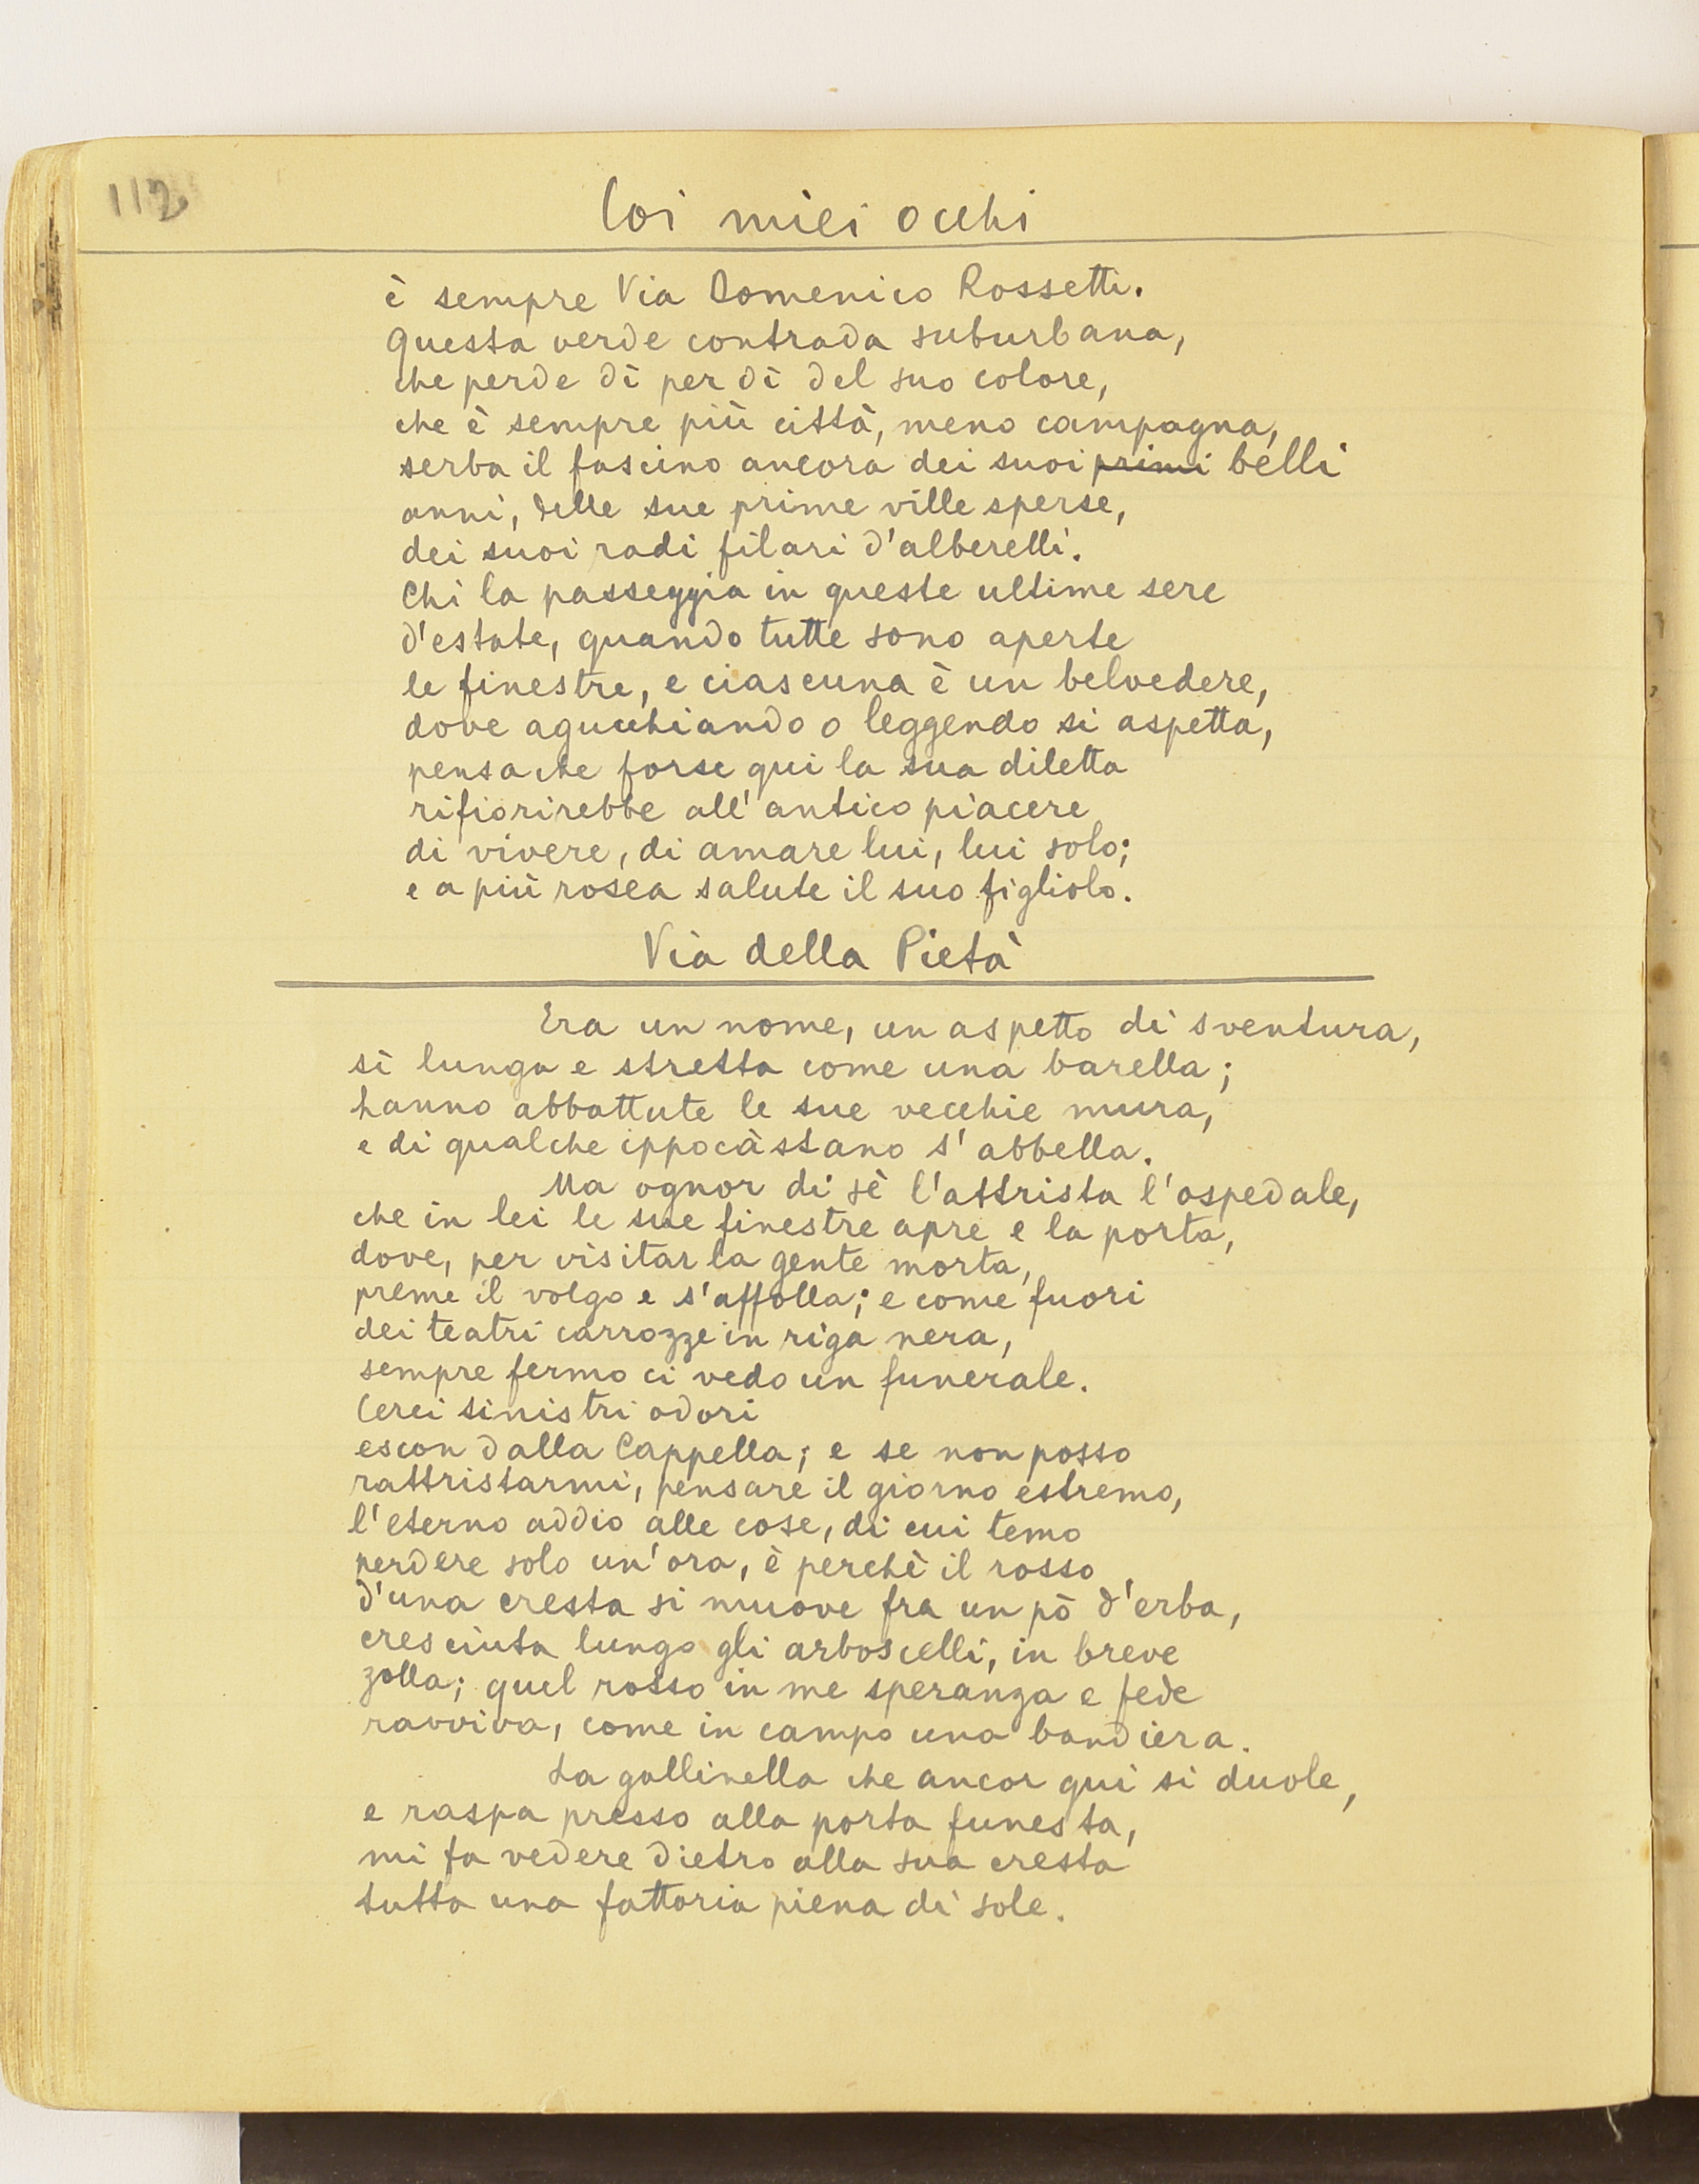 112
Coi miei occhi
è sempre Via Domenico Rossetti.
Questa verde contrada suburbana,
che perde dì per dì del suo colore,
che è sempre più città, meno campagna,
serba il fascino ancora dei suoi primi belli
anni, delle sue prime ville sperse,
dei suoi radi filari d'alberelli.
Chi la passeggia in queste ultime sere
d'estate, quando tutte sono aperte
le finestre, e ciascuna è un belvedere,
dove agucchiando o leggendo si aspetta,
pensa che forse qui la sua diletta
rifiorirebbe all'antico piacere
di vivere, di amare lui, lui solo;
e a più rosea salute il suo figliolo.
Via della Pietà
Era un nome, un aspetto di sventura,
sì lunga e stretta come una barella;
hanno abbattute le sue vecchie mura,
e di qualche ippocàstano s'abbella.
Ma ognor di sè l'attrista l'ospedale,
che in lei le sue finestre apre e la porta,
dove, per visitar la gente morta,
preme il volgo e s'affolla; e come fuori
dei teatri carrozze in riga nera,
sempre fermo ci vedo un funerale.
Cerei sinistri odori
escon dalla Cappella; e se non posso
rattristarmi, pensare il giorno estremo,
l'eterno addio alle cose, di cui temo
perdere solo un'ora, è perchè il rosso
d'una cresta si muove fra un pò d'erba,
cresciuta lungo gli arboscelli, in breve
zolla; quel rosso in me speranza e fede
ravviva, come in campo una bandiera.
La gallinella che ancor qui si duole,
e raspa presso alla porta funesta,
mi fa vedere dietro alla sua cresta
tutta una fattoria piena di sole.